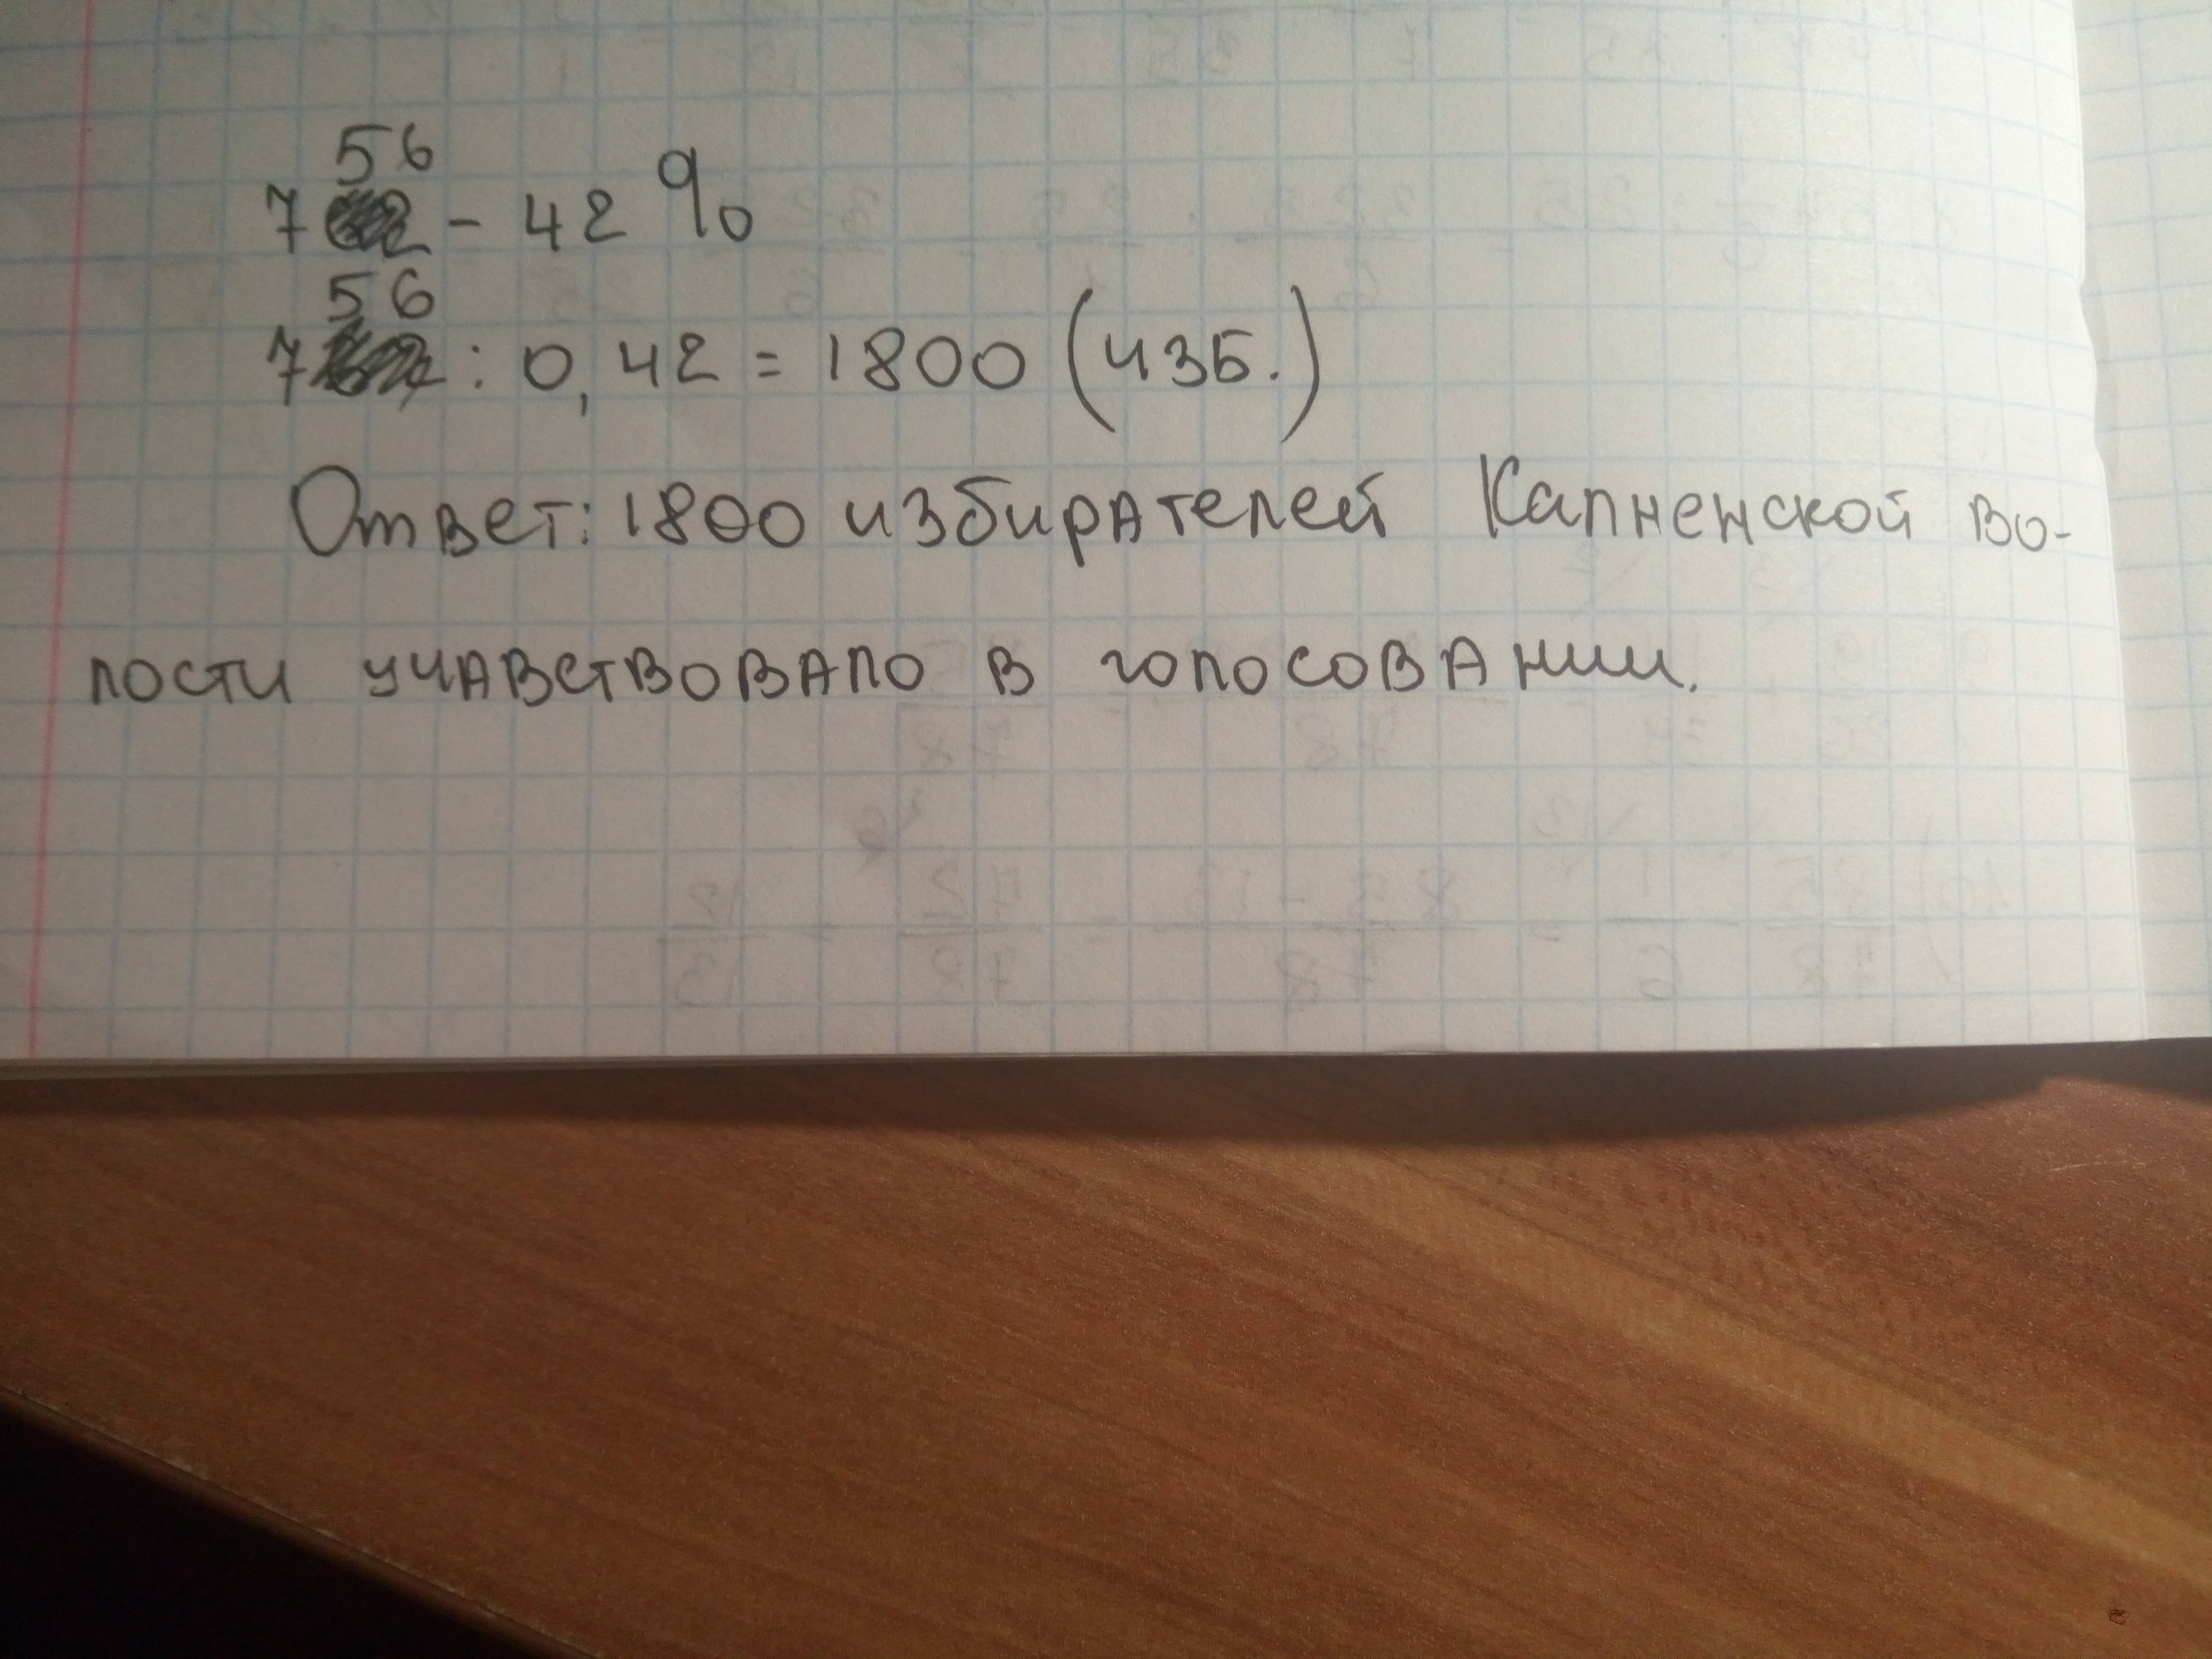 756 - 42 %
756 : 0,42 = 1800 (изб.)
Ответ: 1800 избирателей Калненской во-
лости учавствовало в голосовании.